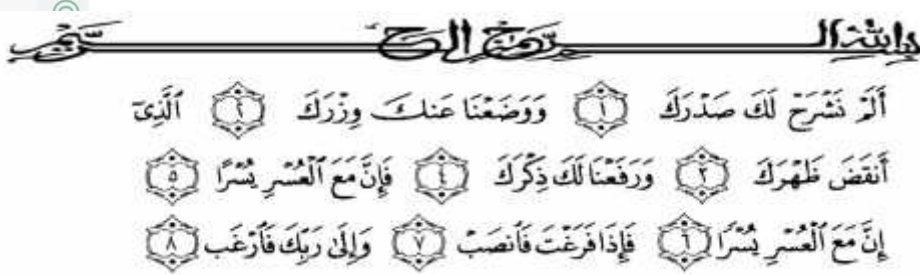 بسم الله الرحمن الرحيم
أَلَمْ نَشْرَحْ لَكَ صَدْرَكَ ١ وَوَضَعْنَا عَنكَ وِزْرَكَ ٢ ٱلَّذِىٓ
أَنقَضَ ظَهْرَكَ ٣ وَرَفَعْنَا لَكَ ذِكْرَكَ ٤ فَإِنَّ مَعَ ٱلْعُسْرِ يُسْرًا ٥
إِنَّ مَعَ ٱلْعُسْرِ يُسْرًا ٦ فَإِذَا فَرَغْتَ فَٱنصَبْ ٧ وَإِلَىٰ رَبِّكَ فَٱرْغَب ٨